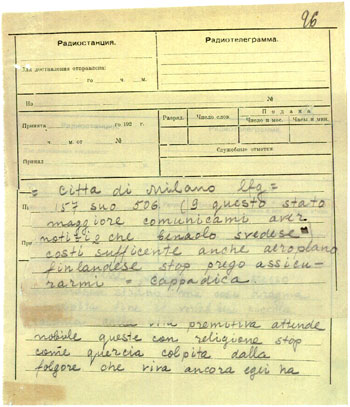 96
Радиостанция.
Радиотелеграмма.
Для доставления отправлена:
го ч. м.
На №
Принята го 192 г.
ч. м. от №
Принял
Разряд. Число слов. Подача
Число и мес. Часы и мин.
Служебные отметки
= citta di Milano
157 suo 506 (9 questo stato
maggiore comunicami aver
notizie che svedese
costi sufficente anche aeroplano
finlandese stop prego assicu-
rarmi = Cappadica
viva premitiva attende
nobile queste con religione stop
come quercia colpita dalla
folgore che viva ancora egei ha